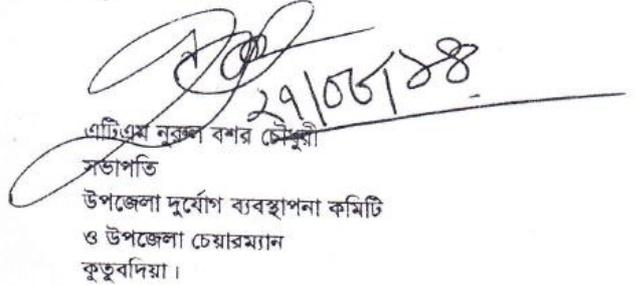 ২৭/০৮/১৪
এটিএম নুরুল বশর চৌধুরী
সভাপতি
উপজেলা দুর্যোগ ব্যবস্থাপনা কমিটি
ও উপজেলা চেয়ারম্যান
কুতুবদিয়া।